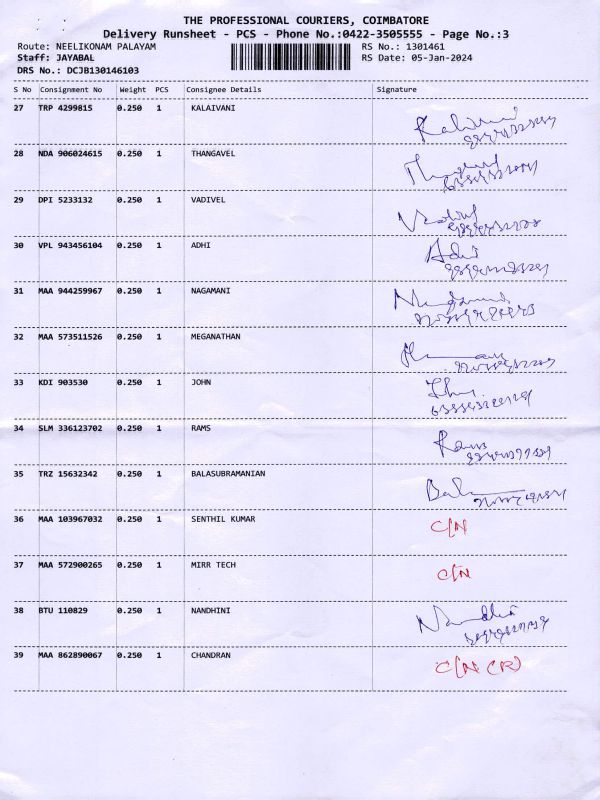 THE PROFESSIONAL COURIERS, COIMBATORE
Delivery Runsheet - PCS - Phone No.:0422-3505555 - Page No.:3
Route: NEELIKONAM PALAYAM RS No.: 1301461
Staff: JAYABAL RS Date: 05-Jan-2024
DRS No.: DCJB130146103
S No Consignment No Weight PCS Consignee Details Signature
27 TRP 4299815 0.250 1 KALAIVANI
28 NDA 906024615 0.250 1 THANGAVEL
29 DPI 5233132 0.250 1 VADIVEL
30 VPL 943456104 0.250 1 ADHI Adhi
31 MAA 944259967 0.250 1 NAGAMANI
32 MAA 573511526 0.250 1 MEGANATHAN
33 KDI 903530 0.250 1 JOHN
34 SLM 336123702 0.250 1 RAMS Rams
35 TRZ 15632342 0.250 1 BALASUBRAMANIAN
36 MAA 103967032 0.250 1 SENTHIL KUMAR C/N
37 MAA 572900265 0.250 1 MIRR TECH C/N
38 BTU 110829 0.250 1 NANDHINI
39 MAA 862890067 0.250 1 CHANDRAN C/N (R)